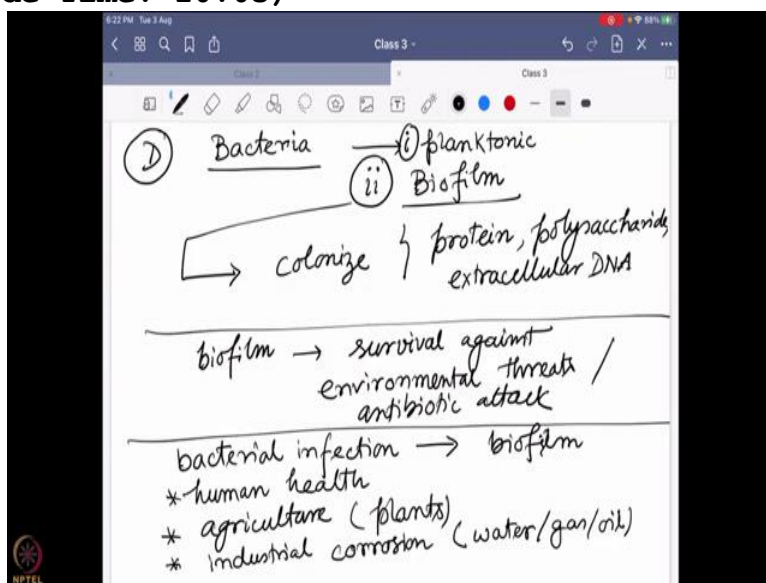 6:22 PM Tue 3 Aug
88%
Class 3
Class 2
Class 3
D Bacteria → i) planktonic
ii) Biofilm
→ colonize } protein, polysaccharide,
extracellular DNA
biofilm → survival against
environmental threats /
antibiotic attack
bacterial infection → biofilm
* human health
* agriculture (plants)
* industrial corrosion (water/gas/oil)
NPTEL